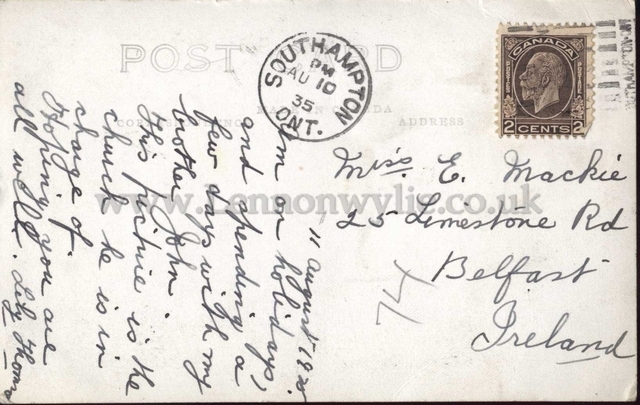 POST CARD
CANADA
2 CENTS 2
SOUTHAMPTON
PM
AU 10
35
ONT.
MADE IN CANADA
ADDRESS
11 august
I'm on holidays,
and spending a
few days with my
brother John.
This picture is the
church he is in
charge of.
Hoping you are
all well. Lily
Miss. E. Mackie
25 Limestone Rd
Belfast
Ireland
74
www.Lennonwylie.co.uk